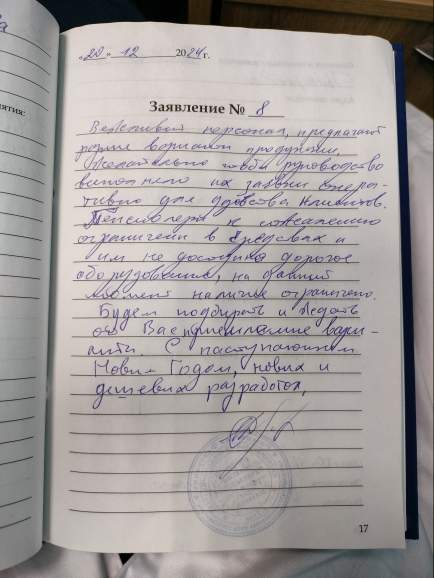 «20» 12 2024 г.
Заявление № 8
Вежливый персонал, предлагают
разные варианты продукции.
Желательно чтобы руководство
выполняло их заявки опера-
тивно для удобства клиентов.
Пенсионеры к сожалению
ограничены в средствах и
им не доступно дорогое
оборудование, на данный
момент наличие ограничено.
Будем подбирать и ждать
от Вас приемлемые вари-
анты. С наступающим
Новым Годом, новых и
дешевых разработок,
17